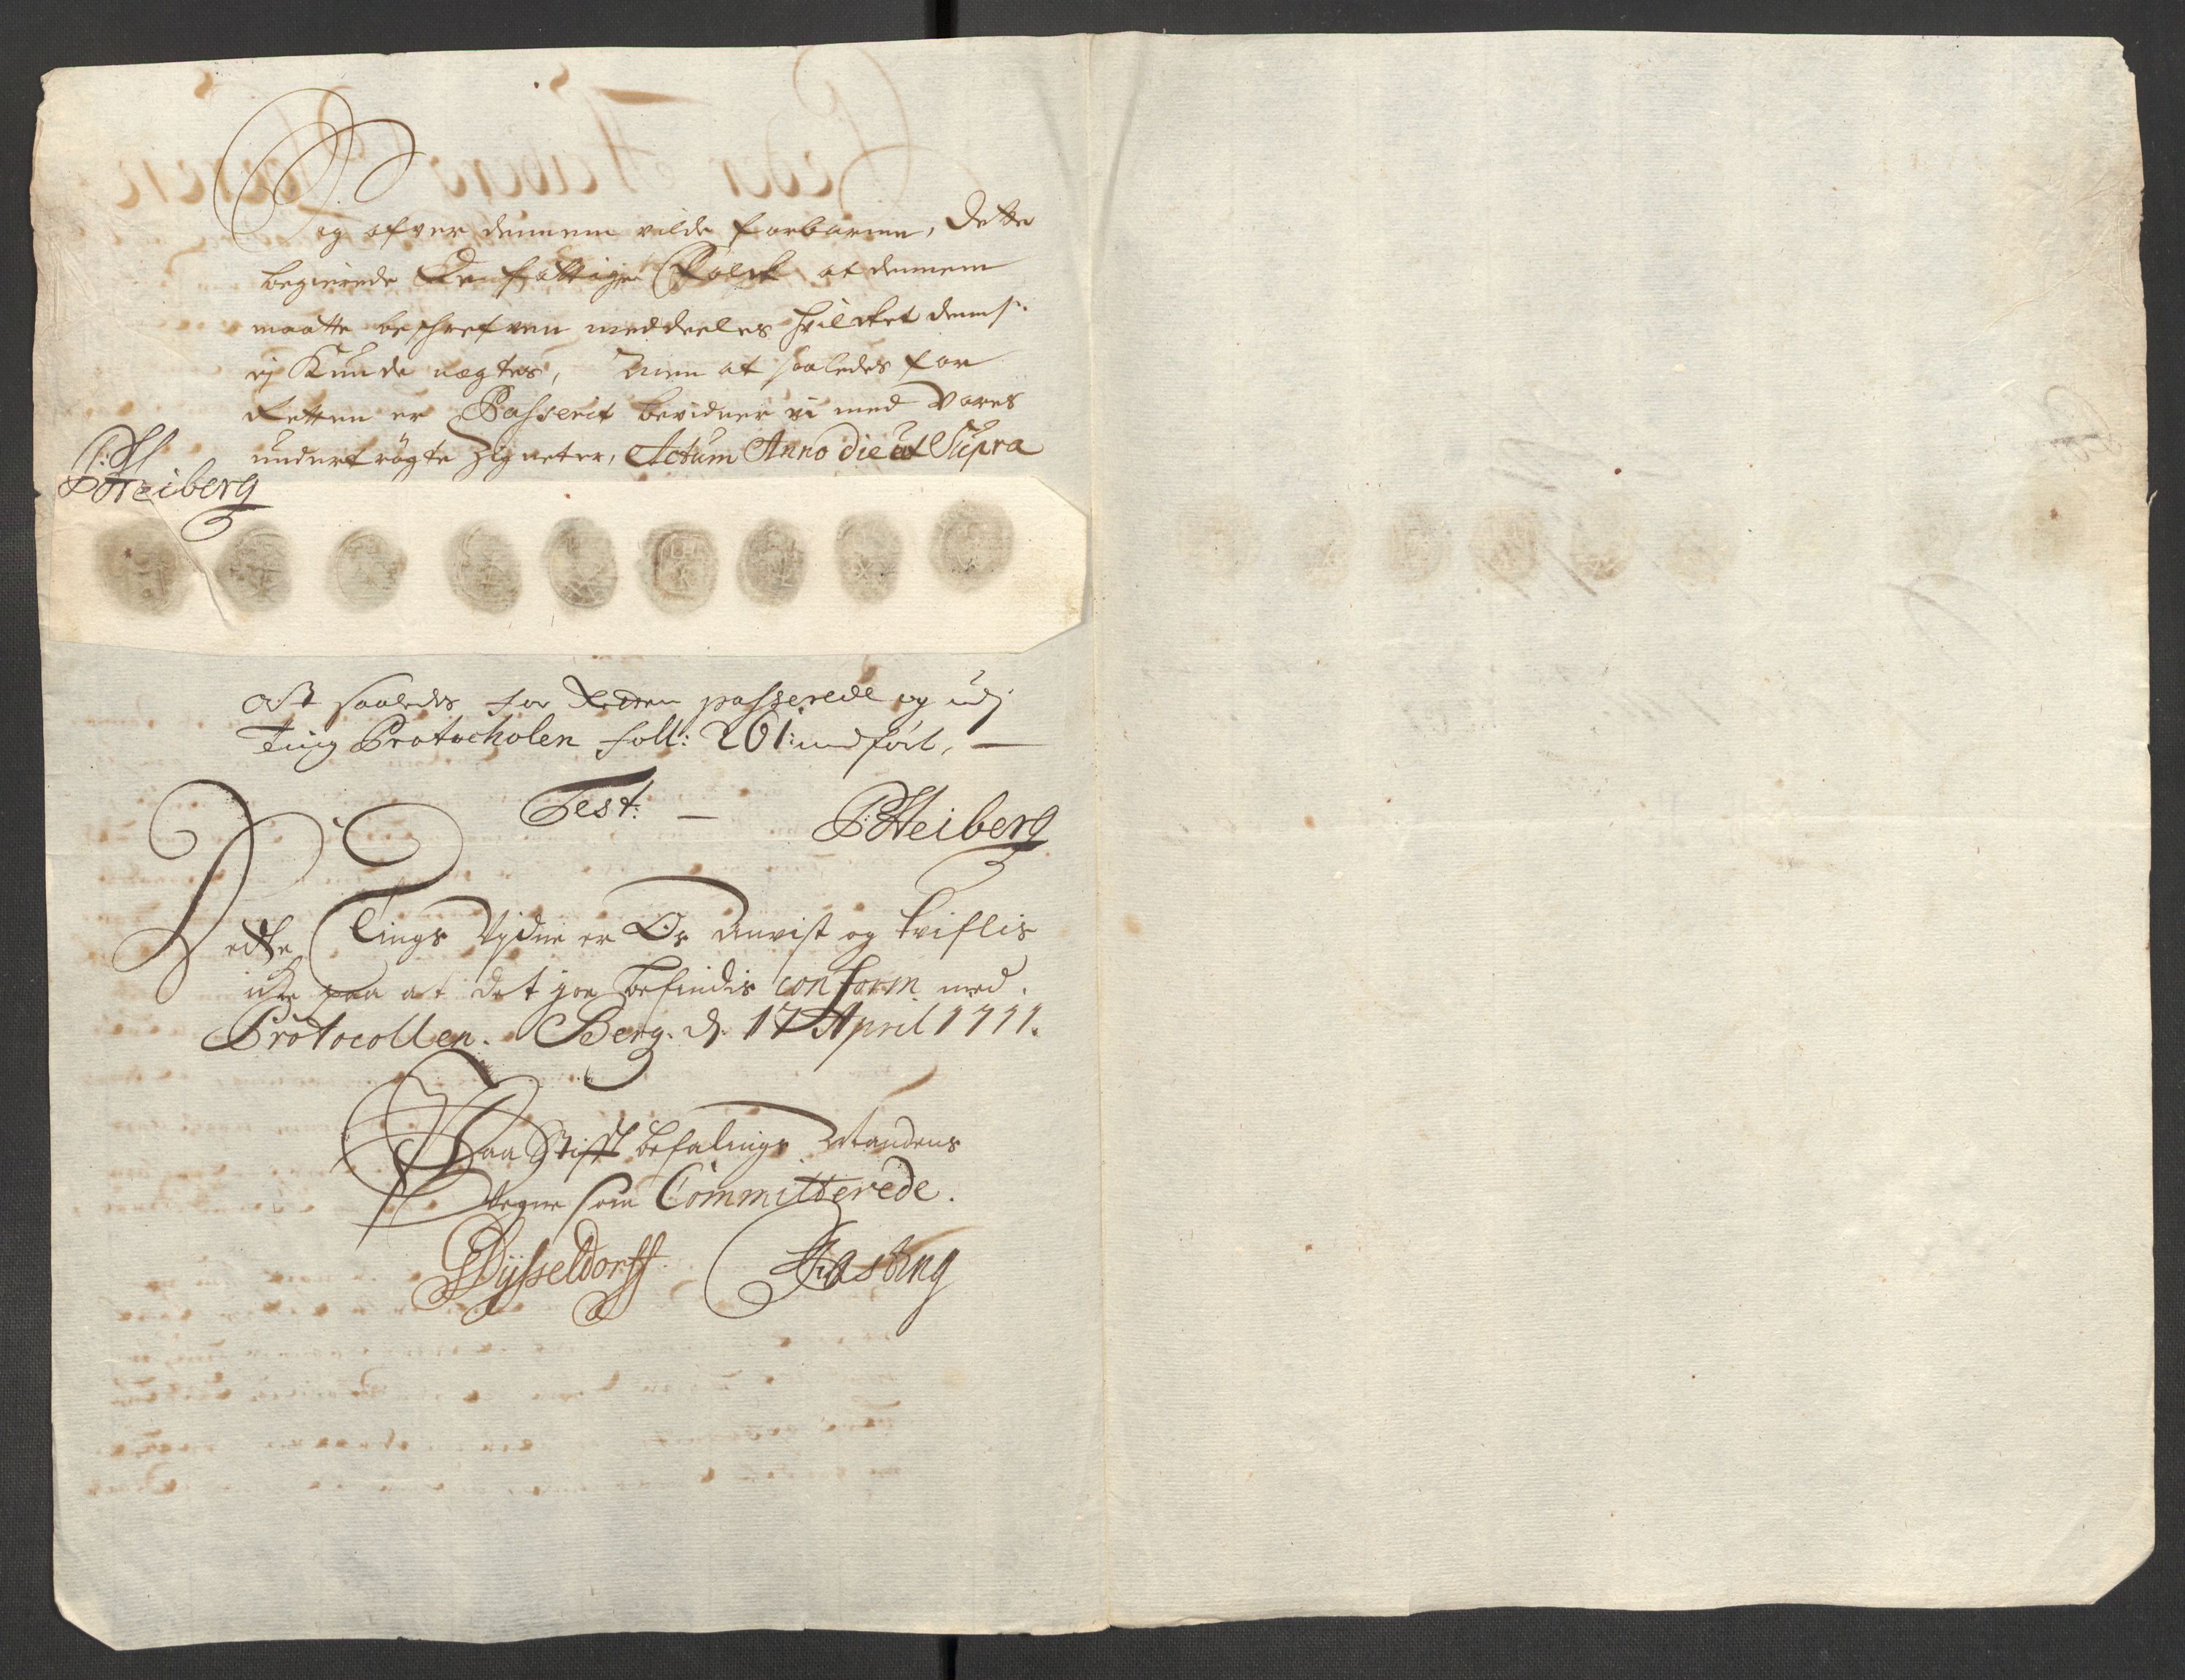 Sig ofver dennem vilde forbarme, Dette
begierede Den fattige Folck at dennem
maatte beschrefven meddeeles hvilcket dennem
ej Kunde nægtes, Men at saaledes for
Retten er Passerit bevidner vi med Vores
undertrögte Zigneter, Actum Anno die ut Supra
PHeiberg
At saaledes for Retten passerede og udj
Ting Protocholen foll: 261: indført, —
Test: —
PHeiberg
Dette Tings Vidne er Os Anvist og tviflis
icke paa at det jo befindis conform med
Protocollen. Berg. d. 17 April 1711.
Paa Stifft befalings Mandens
Vegne som Committerede.
Dÿsseldorff. Fasting